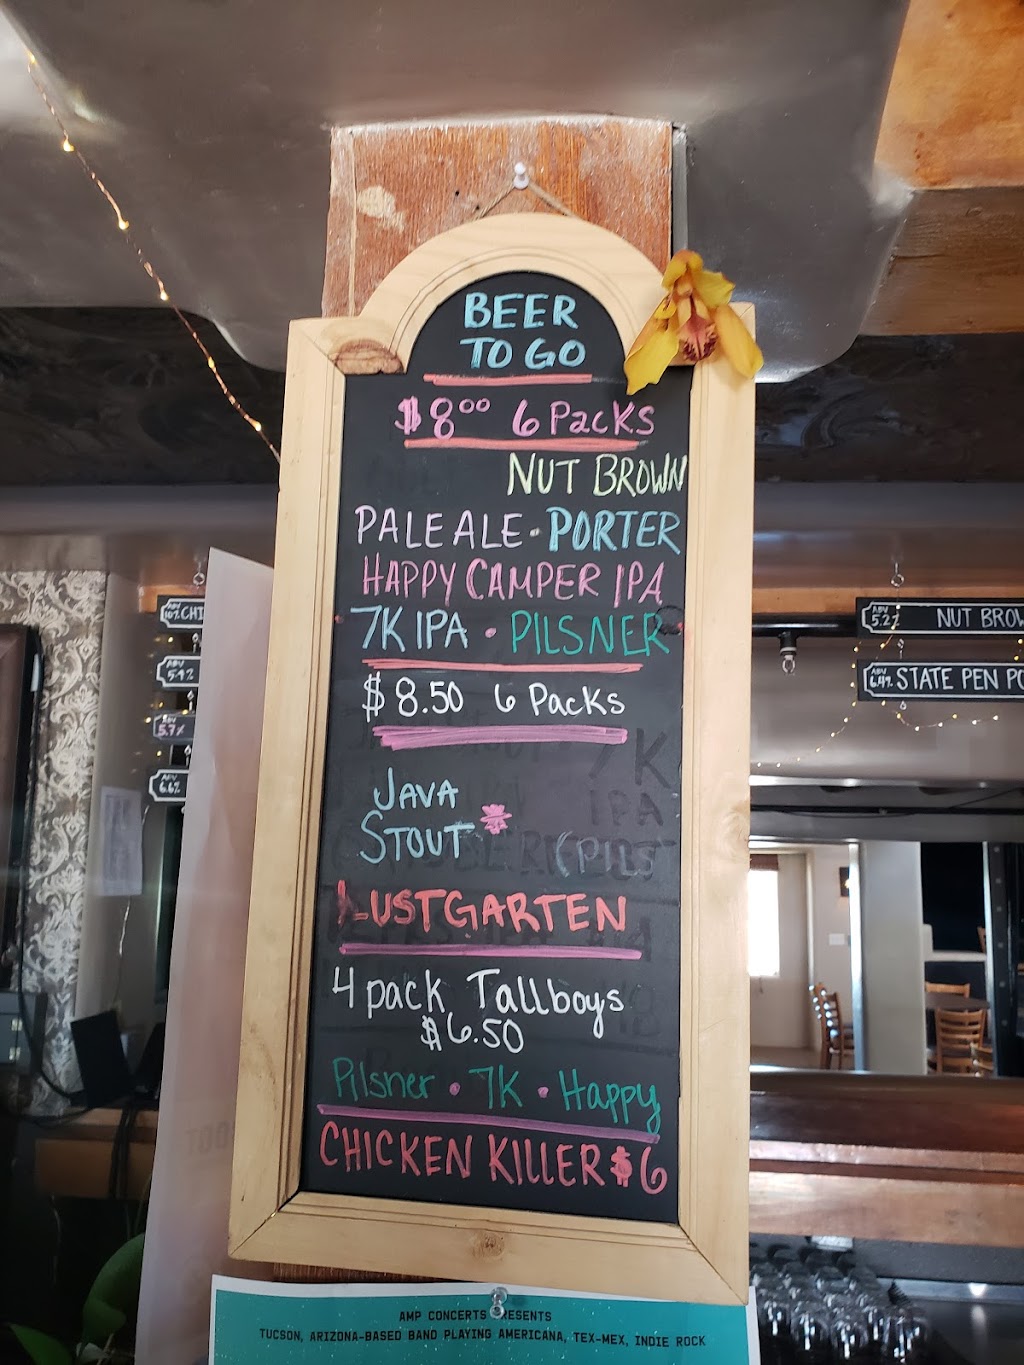 BEER
TO GO
$8.00 6 Packs
NUT BROWN
PALE ALE · PORTER
HAPPY CAMPER IPA
7K IPA · PILSNER
$8.50 6 Packs
JAVA
STOUT
LUSTGARTEN
4 pack Tallboys
$6.50
Pilsner · 7K · Happy
CHICKEN KILLER $6
ABV
10% CHI
ABV
5.4%
ABV
5.7%
ABV
6.6%
ABV
5.2% NUT BROW
ABV
6.4% STATE PEN PO
7K
IPA
AMP CONCERTS PRESENTS
TUCSON, ARIZONA-BASED BAND PLAYING AMERICANA, TEX-MEX, INDIE ROCK